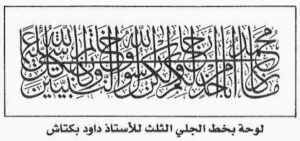 ما كان محمد أبا أحد من رجالكم ولكن رسول الله وخاتم النبيين
لوحة بخط الجلي الثلث للأستاذ داود بكتاش